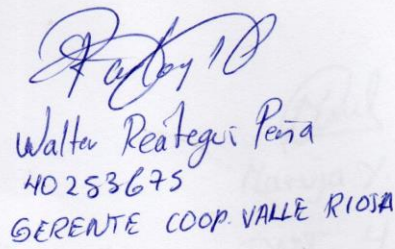 Walter Reátegui Peña
40253675
GERENTE COOP. VALLE RIOJA